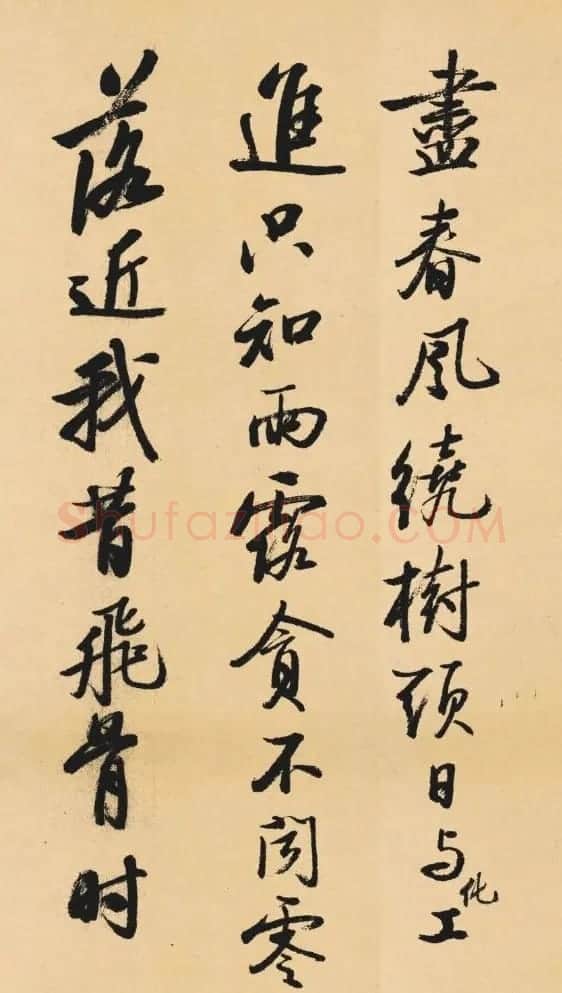 盡春風繞樹頭日与化工
進只知雨露貪不聞零
落近我昔飛骨时